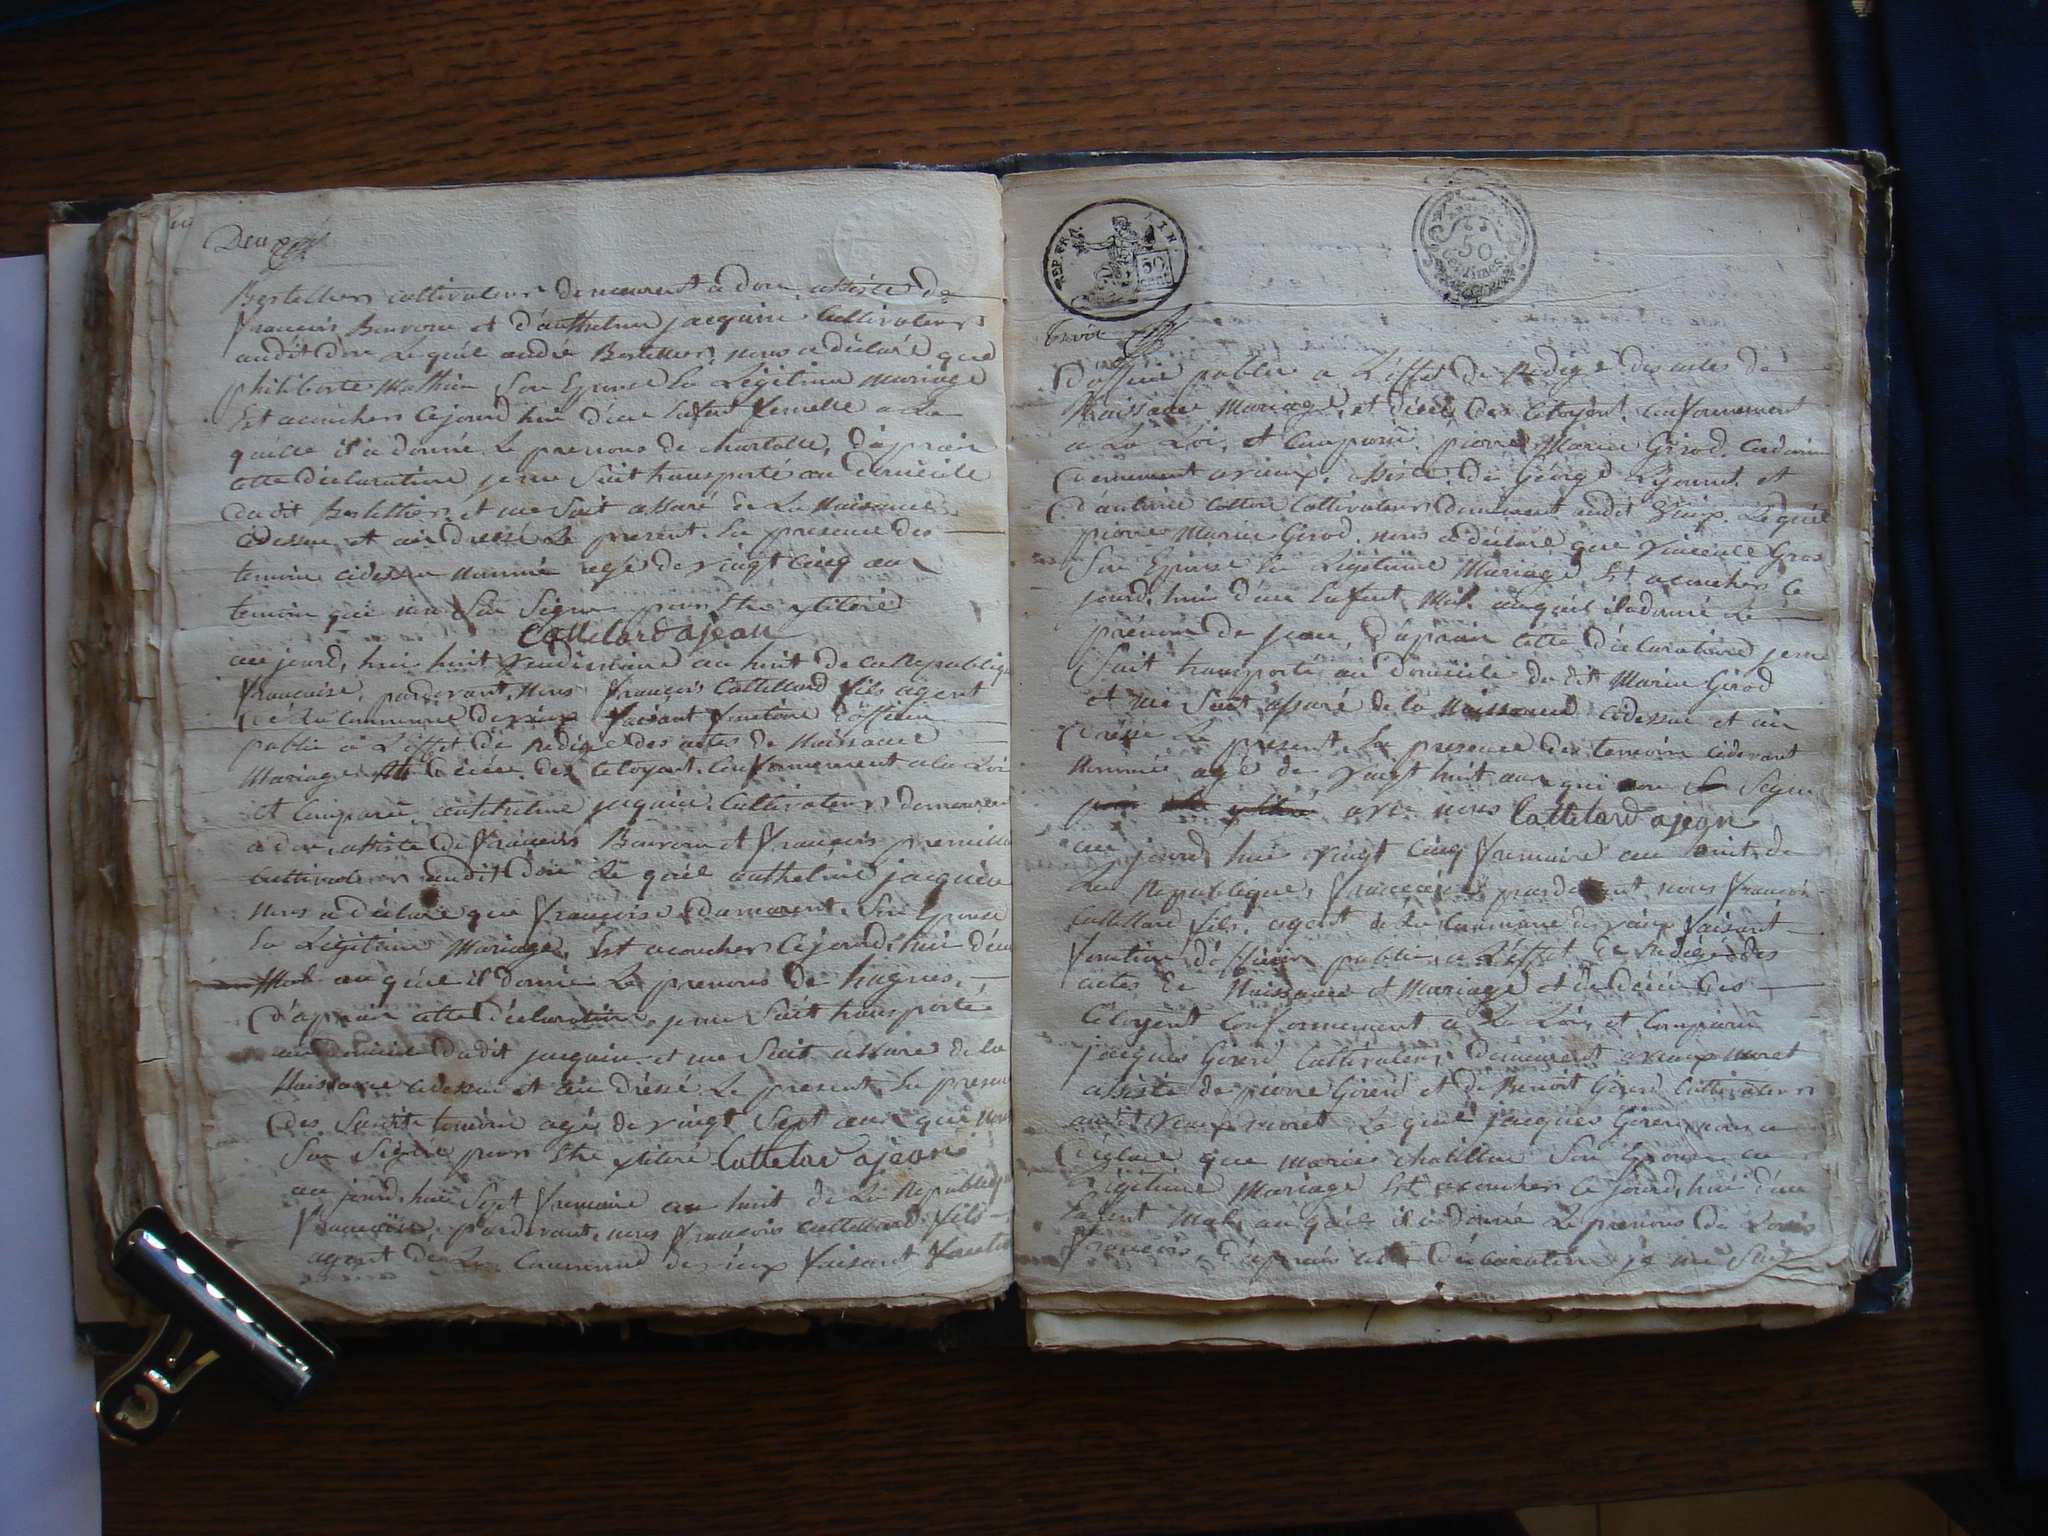 Deux
Bertelliers cultivateur demeurent a dore assiste de
françois Bouvrou et d'anthelme jacquin cultivateurs
audit dore Le quel André Bertellier nous a déclaré que
philiberte Mathieu Son Epouse En Légitime Mariage
Est acouchers Cejourd'hui d'un Enfent femelle a La
quelle il a donné Le prenons de charlotte, d'aprair
cette déclaration je me Suit transporté au domicile
dudit Bertelliers et me Suit assuré de La Naissance
cidessu et ai dressé Le present En presence des
temoins cidessu nommé agé de vingt cinq ans
temoin que non Sue Signe pour Etre
Cattelard ajean
au jourd, hui huit vendemiaire an huit de La Republique
francaise, pardevant Nous françois Cattellard fils agent
de La Commune de vieux faisant fonction d'officier
public a L'effet de redigé des actes de Naissance
Mariage et décée des Citoyent Conformement a la Loi
et Comparu anthelme jaquin Cultivateurs demeurent
a dore assiste de françois Bouvrou et françois
cultivateurs audit dore Le quel anthelme jacquin
nous a déclaré que françoise Son Epouse
En Légitime Mariage Est acouchers Cejourd, hui d'un
Mal au quel il donné Le prenons de hugues
d'aprair cette déclaration je me Suit transporté
au domicile dudit jaquin et me Suit assure de la
Naissance cidessu et ai dressé Le present En presence
des Sudit temoins agé de vingt Sept ans qui non
Sue Signé pour Etre Cattelard ajean
au jourd, hui Sept frimaire an huit de La Republique
françaïse, pardevant nous françois Cattellard fils
agent de La Commune de vieux faisant fonction
REP. FRA.
50
50
Centimes
trois
d'officie public a L'effet de Redigé des actes de
Naissance Mariage, et décée des Citoyent Conformement
a La Loi, et Comparu pierre Marie Girod
demeurent a vieux, assiste de George et
d'antoine Cultivateurs demeurent audit vieux Le quel
pierre Marie Girod nous a déclaré que vincente Gros
Son Epouse En Légitime Mariage Est acouchers Ce
jourd, hui d'un Enfent Mal auquel il a donné Le
prénom de jean, d'aprair cette déclaration je me
Suit transporté au domicile dudit Marie Girod
et me Suit assuré de la Naissance cidessu et ai
dressé Le present En presence des temoin cidevant
Nommé agé de vingt huit ans qui on Signe
avec nous Cattelard ajean
au jourd hui vingt cinq frimaire an huit de
La Republique, francaise pardevant nous françois
Cattellard fils agent de La Commune de vieux faisant
fonction d'officier public a L'effet de Redigé des
actes de Naissance et Mariage et de décée des
Citoyent Conformement a La Loi et Comparu
jacques Girerd Cultivateurs demeurent a vieux
assisté de pierre Girerd et de Benoit Girerd Cultivateurs
audit Le quel jacques Girerd nous a
déclaré que Marie chatillon Son Epouse en
Légitime Mariage Est acouchers Ce jourd, hui d'un
Enfent Mal, au quel il a donné Le prenons de Louis
françois, d'aprais cette déclaration je me Suit